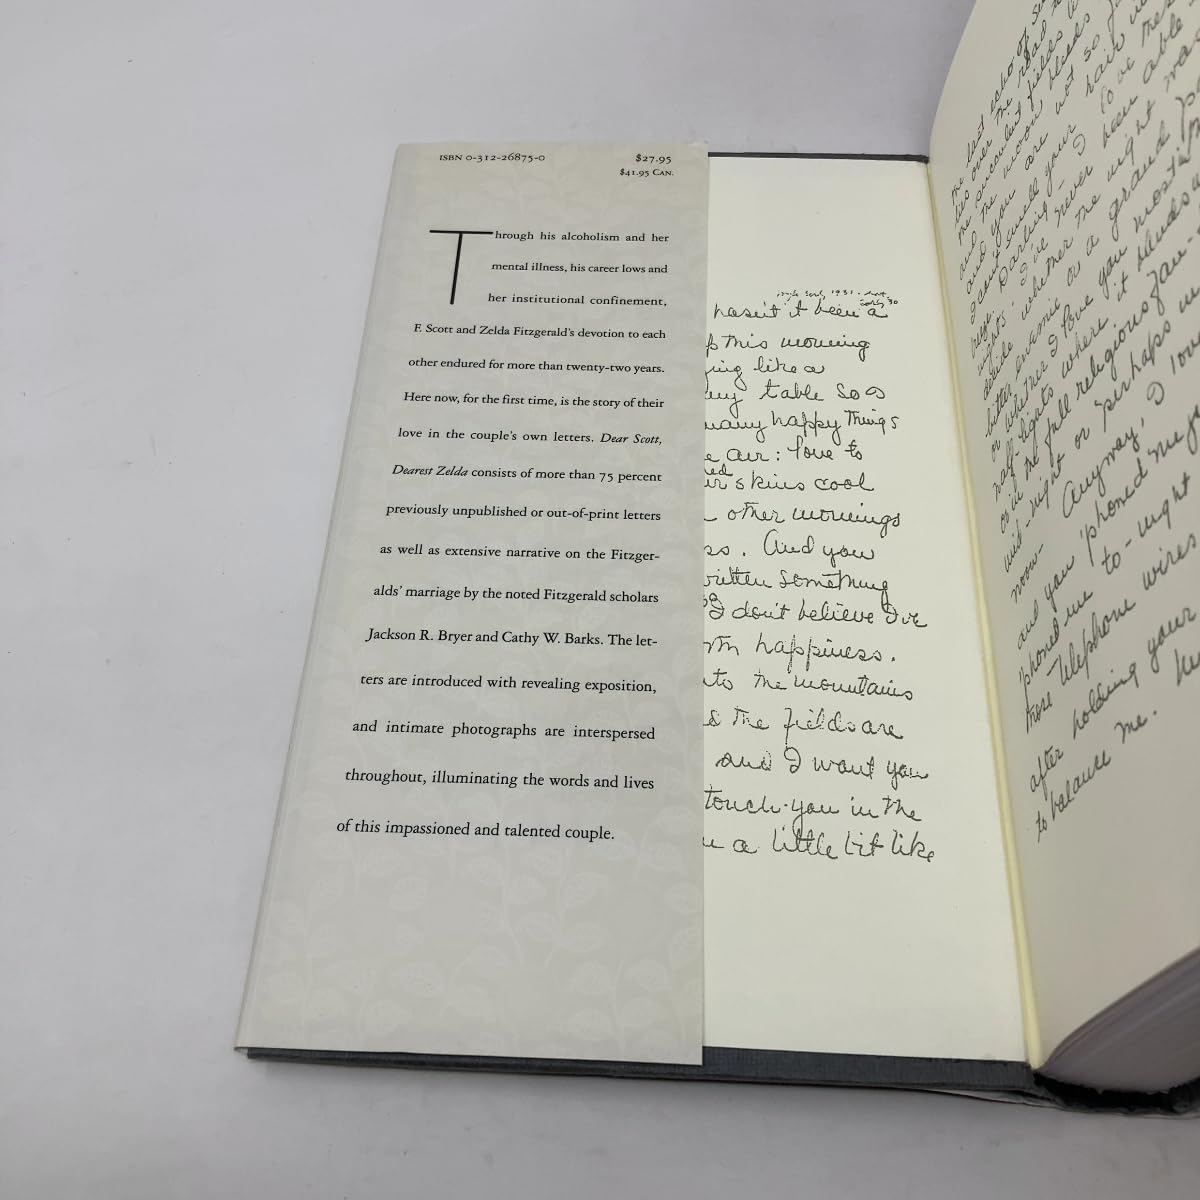 ISBN 0-312-26875-0
$27.95
$41.95 CAN.
Through his alcoholism and her
mental illness, his career lows and
her institutional confinement,
F. Scott and Zelda Fitzgerald's devotion to each
other endured for more than twenty-two years.
Here now, for the first time, is the story of their
love in the couple's own letters. Dear Scott,
Dearest Zelda consists of more than 75 percent
previously unpublished or out-of-print letters
as well as extensive narrative on the Fitzger-
alds' marriage by the noted Fitzgerald scholars
Jackson R. Bryer and Cathy W. Barks. The let-
ters are introduced with revealing exposition,
and intimate photographs are interspersed
throughout, illuminating the words and lives
of this impassioned and talented couple.
1931 - not
early 30
hasn't it been a
this morning
like a
table so
many happy things
air: love to
skins cool
other mornings
. And you
written something
I don't believe I've
happiness.
to the mountains
the fields are
and I want you
touch you in the
a little bit like
the last echo of
lies over the road
the succulent fields
and the moon bleeds
and you are not so
I can't smell your hair
Darling - I've never been able
decide whether the night was
bitter enemie or a grand
or whether I love you most in
half-lights where it blends
or in the full religious fan-
mid-night or perhaps in
noon - Anyway, I love
and you 'phoned me
'phoned me to-night
those telephone wires
after holding your
to balance me.